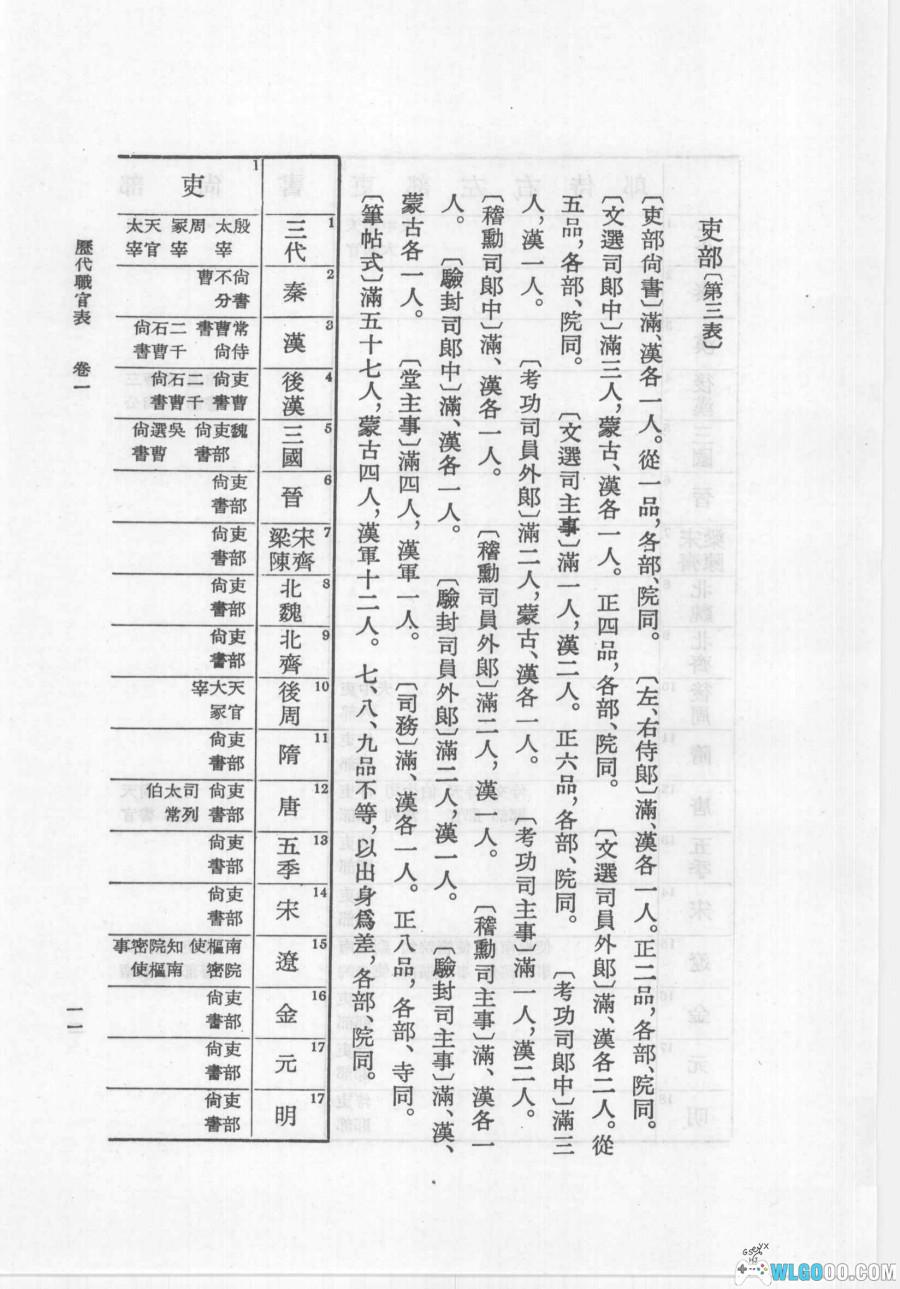 吏部〔第三表〕
〔吏部尙書〕滿、漢各一人。從一品，各部、院同。　〔左、右侍郎〕滿、漢各一人。正二品，各部、院同。
〔文選司郎中〕滿三人，蒙古、漢各一人。正四品，各部、院同。　〔文選司員外郎〕滿、漢各二人。從
五品，各部、院同。　〔文選司主事〕滿一人，漢二人。正六品，各部、院同。　〔考功司郎中〕滿三
人，漢一人。　〔考功司員外郎〕滿二人，蒙古、漢各一人。　〔考功司主事〕滿一人，漢二人。
〔稽勳司郎中〕滿、漢各一人。　〔稽勳司員外郎〕滿二人，漢一人。　〔稽勳司主事〕滿、漢各一
人。　〔驗封司郎中〕滿、漢各一人。　〔驗封司員外郎〕滿二人，漢一人。　〔驗封司主事〕滿、漢、
蒙古各一人。　〔堂主事〕滿四人，漢軍一人。　〔司務〕滿、漢各一人。正八品，各部、寺同。
〔筆帖式〕滿五十七人，蒙古四人，漢軍十二人。　七、八、九品不等，以出身爲差，各部、院同。
1
三代
2
秦
3
漢
4
後漢
5
三國
6
晉
7
宋齊
梁陳
8
北魏
9
北齊
10
後周
11
隋
12
唐
13
五季
14
宋
15
遼
16
金
17
元
17
明
1
吏
殷太宰　周冢宰　天官太宰
尙書不分曹
常侍曹尙書　二千石曹尙書
吏曹尙書　二千石曹尙書
魏吏部尙書　吳選曹尙書
吏部尙書
吏部尙書
吏部尙書
吏部尙書
天官大冢宰
吏部尙書
吏部尙書　司列太常伯
吏部尙書
吏部尙書
南院樞密使　知南院樞密使事
吏部尙書
吏部尙書
吏部尙書
歷代職官表　卷一
一一
WLGOOO.COM